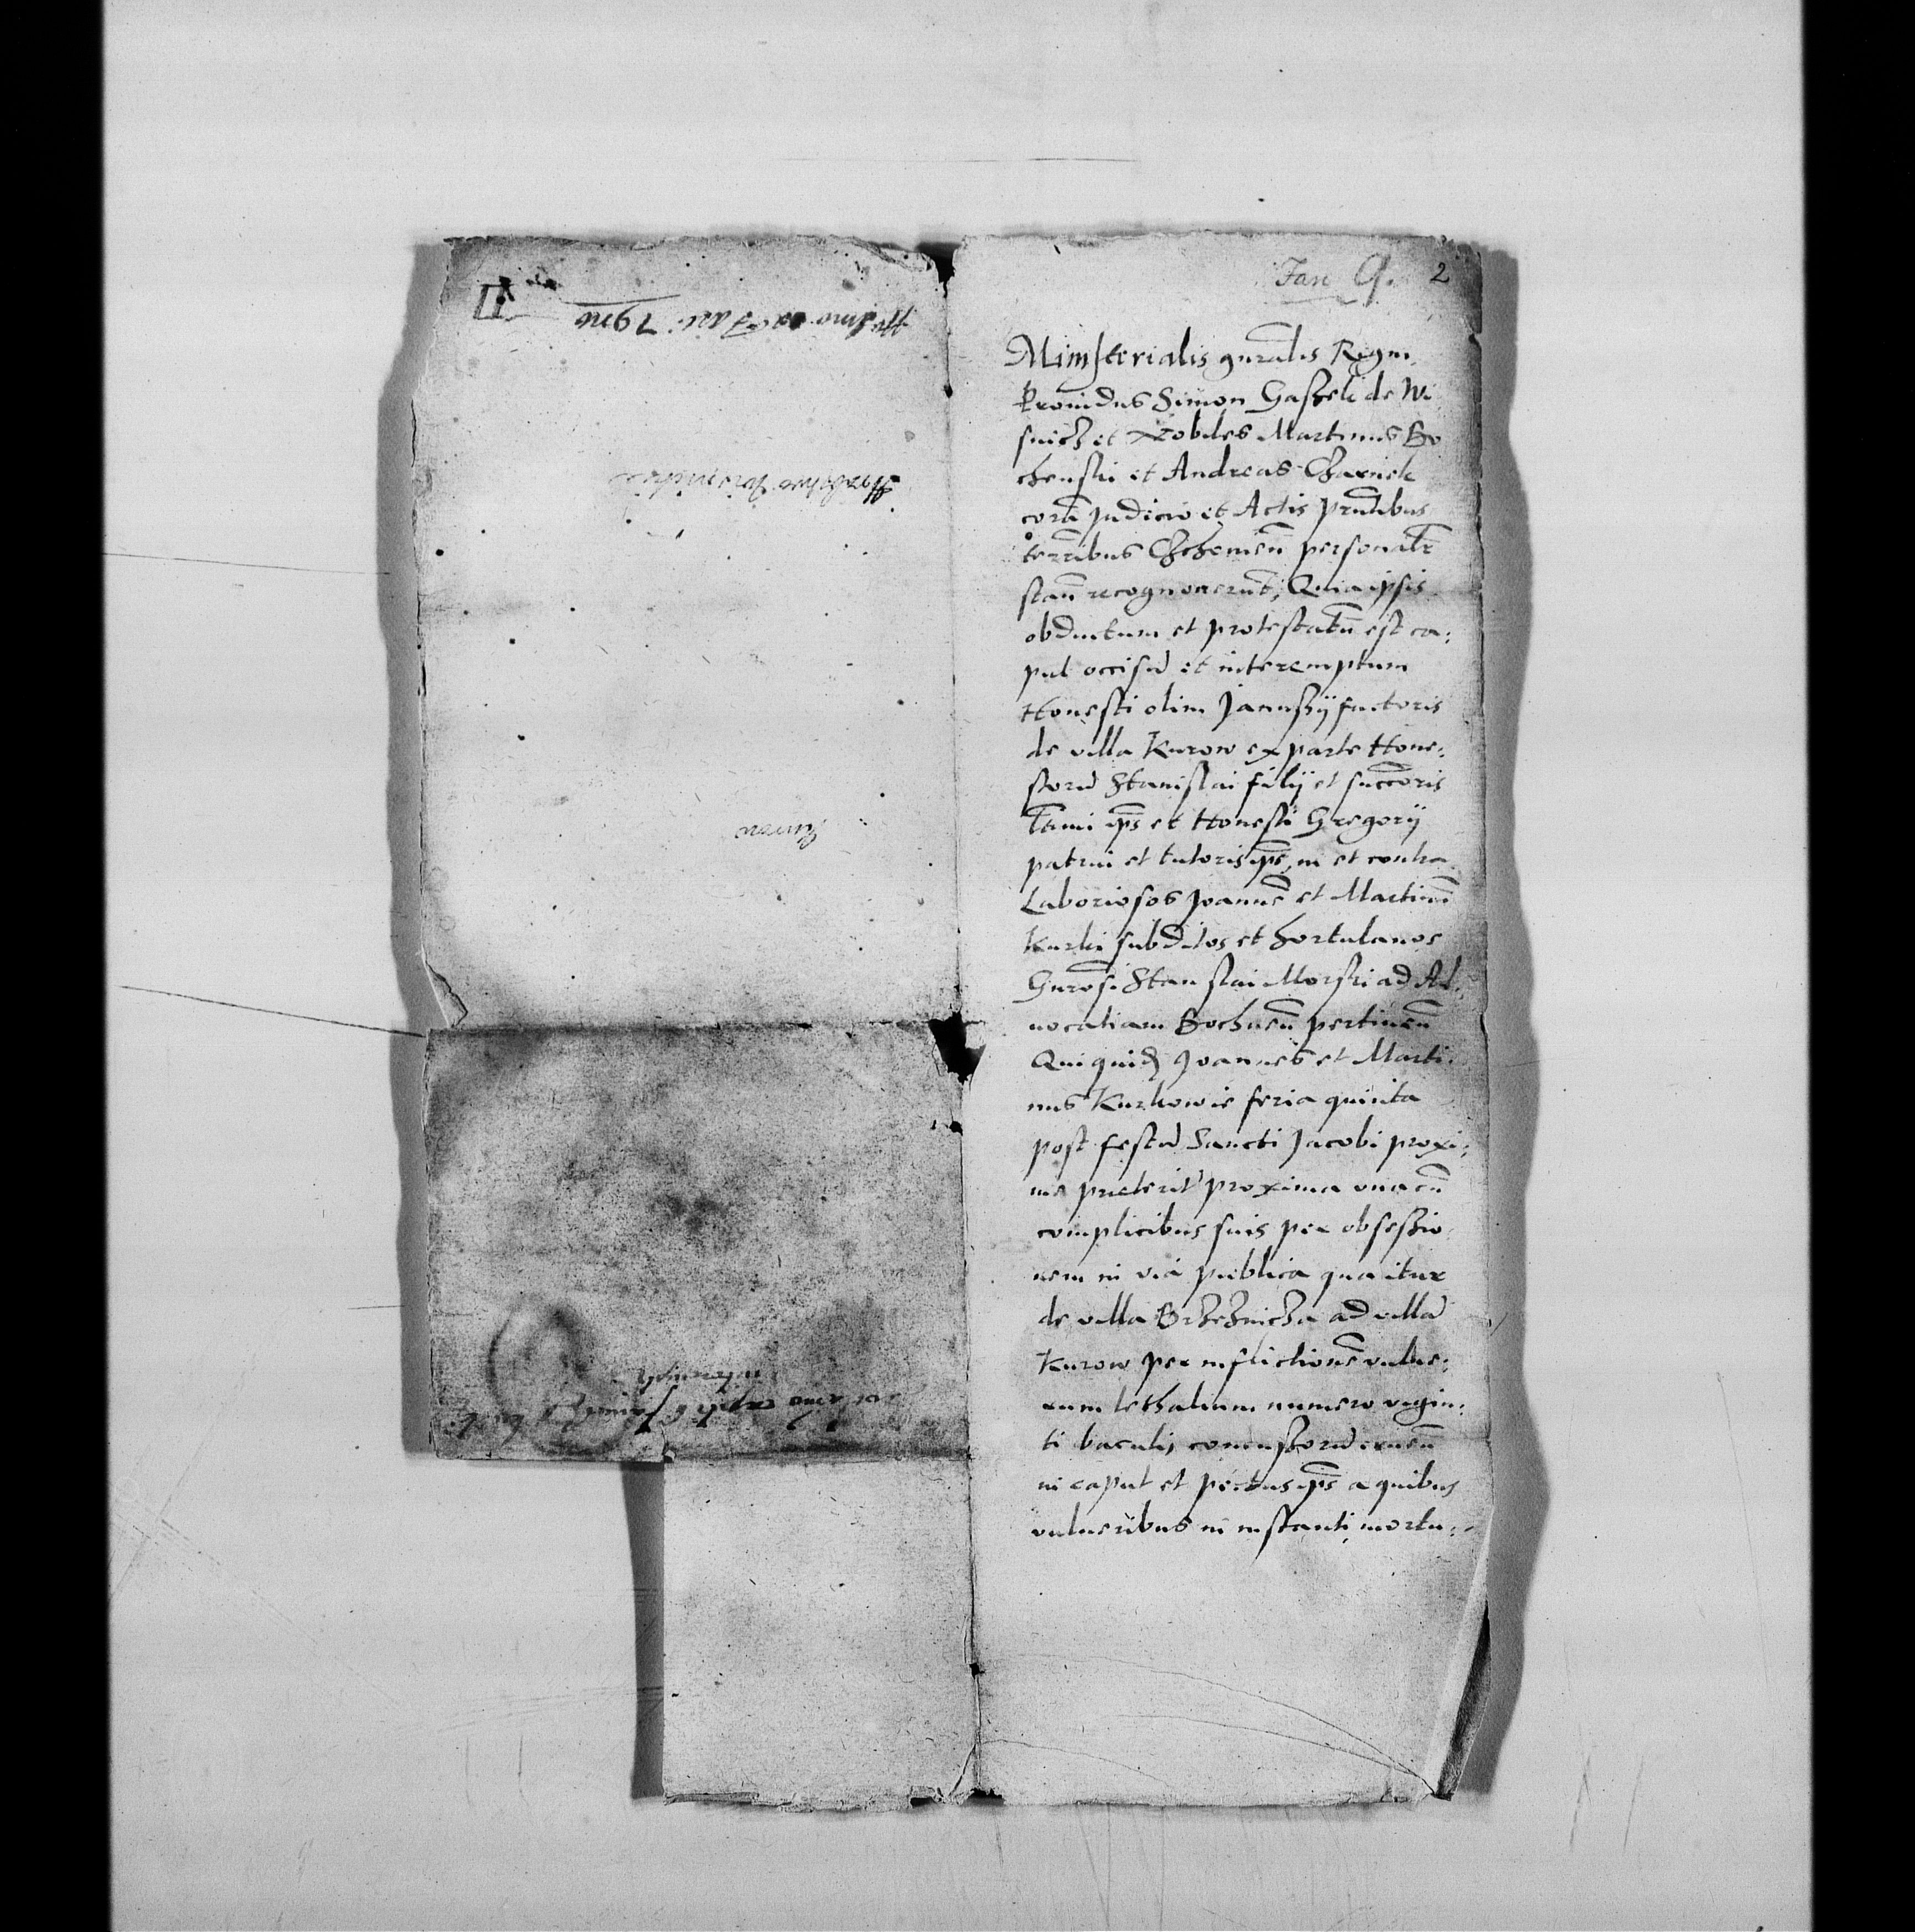 Jan 9. 2
Ministerialis gnralis Regni
Providus Simon Gaßek de Wi
snicz et Nobiles Martinus Bo
chenski et Andreas Charnek
cora Judicio et Actis prntibus
terribus Czchonien personalr
stan recognoverut; Quia ipsis
obductum et protestatu est ca:
put occisu et interemptum
Honesti olim Janußij sutoris
de villa Kurow ex parte Hone:
storu Stanislai filij et succoris
ltimi ips et Honesti Gregorij
patrui et tutoris ips, in et contra
Laboriosos Joanne et Martinu
Kurki subditos et hortulanos
Gnrosi Stanislai Morski ad Ad:
vocatiam Bochnen pertinen
Qui quid Joannes et Marti:
nus Kurkowie feria quinta
post festu Sancti Jacobi proxi:
me praeterit proxima una cu
complicibus suis per obseßio
nem in via publica qua itur
de villa Brzeznicza ad villa
Kurow per inflictione vulne:
rum lethalium numero vigin:
ti baculis concußoru cruen
in caput et pectus ips a quibus
vulneribus in instanti mortu: